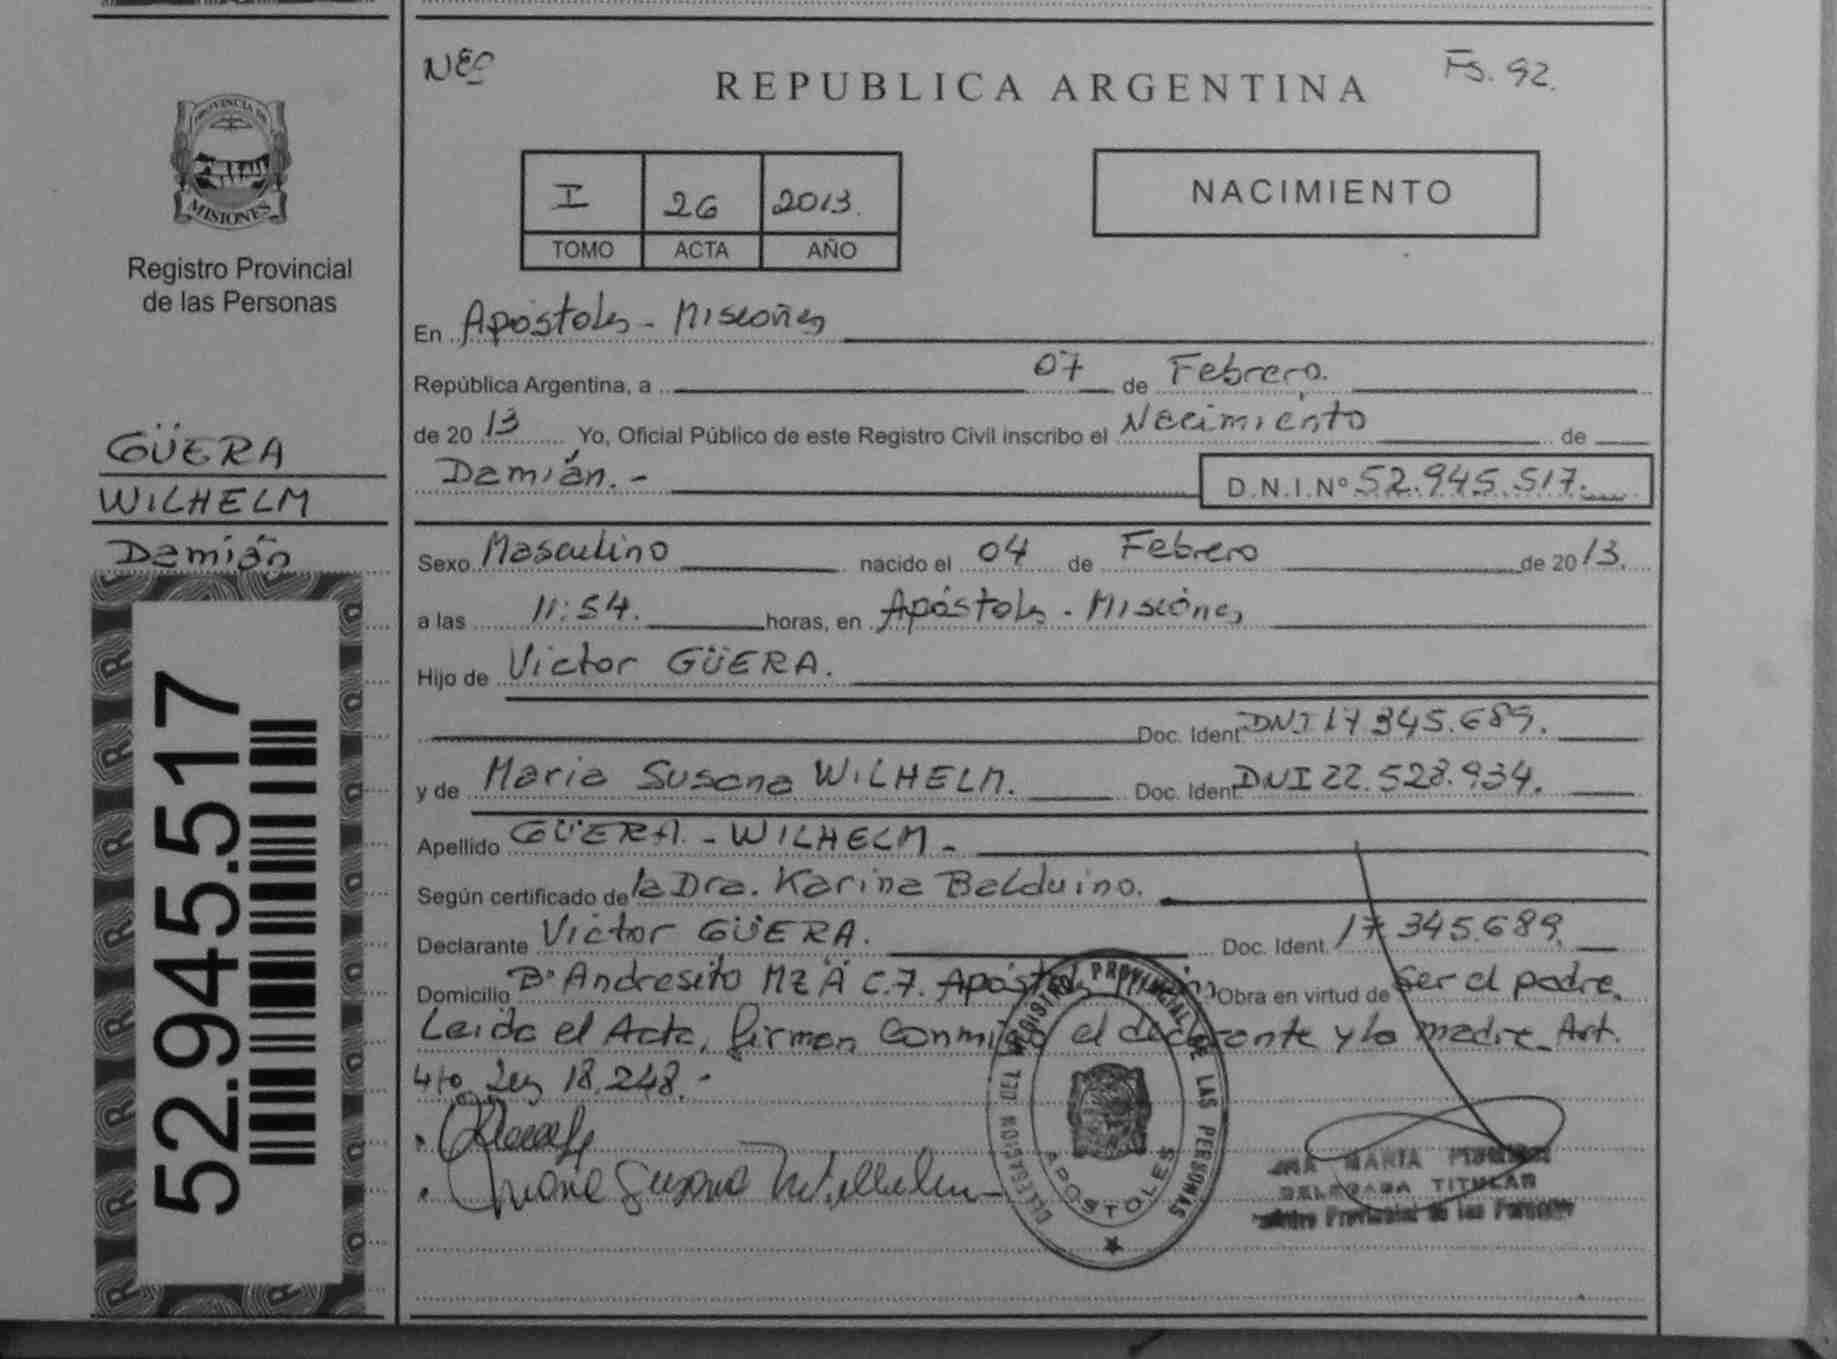 NEC
Fs. 92.
REPUBLICA ARGENTINA
PROVINCIA DE
MISIONES
Registro Provincial
de las Personas
I 26 2013.
TOMO ACTA AÑO
NACIMIENTO
GÜERA
WILHELM
Damián
52.945.517
En Apóstoles - Misiones
República Argentina, a 07 de Febrero.
de 20 13 Yo, Oficial Público de este Registro Civil inscribo el Nacimiento de
Damián. - D.N.I.Nº 52.945.517.
Sexo Masculino nacido el 04 de Febrero de 20 13.
a las 11:54. horas, en Apóstoles - Misiones
Hijo de Victor GÜERA.
Doc. Ident. DNI 17.345.689.
y de Maria Susana WILHELM. Doc. Ident. DNI 22.528.934.
Apellido GÜERA - WILHELM -
Según certificado de la Dra. Karina Balduino.
Declarante Victor GÜERA. Doc. Ident. 17.345.689.
Domicilio Bº Andresito MZ A C.7. Apóstoles Obra en virtud de Ser el padre.
Leida el Acta, firman Conmigo el declarante y la madre. Art.
4to Ley 18.248.-
Maria Susana Wilhelm
DELEGACION DEL REGISTRO PROVINCIAL DE LAS PERSONAS
APOSTOLES
MARIA
DELEGADA TITULAR
Registro Provincial de las Personas